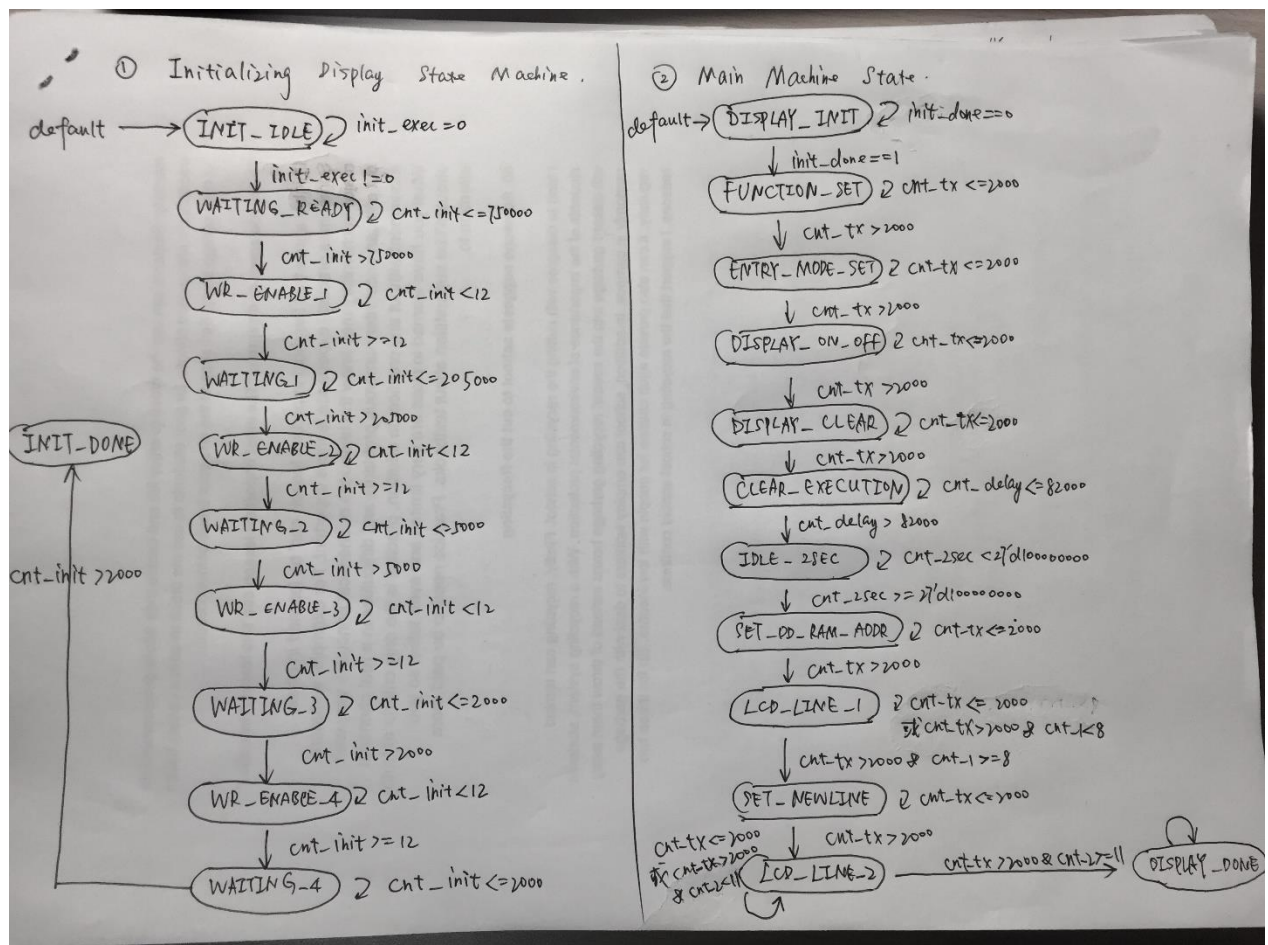 ① Initializing Display State Machine.
default
INIT_IDLE init_exec=0
init_exec!=0
WAITING_READY cnt_init<=750000
cnt_init>750000
WR_ENABLE_1 cnt_init<12
cnt_init>=12
WAITING_1 cnt_init<=205000
cnt_init>205000
WR_ENABLE_2 cnt_init<12
cnt_init>=12
WAITING_2 cnt_init<=5000
cnt_init>5000
WR_ENABLE_3 cnt_init<12
cnt_init>=12
WAITING_3 cnt_init<=2000
cnt_init>2000
WR_ENABLE_4 cnt_init<12
cnt_init>=12
WAITING_4 cnt_init<=2000
cnt_init>2000
INIT_DONE
② Main Machine State.
default
DISPLAY_INIT init_done==0
init_done==1
FUNCTION_SET cnt_tx<=2000
cnt_tx>2000
ENTRY_MODE_SET cnt_tx<=2000
cnt_tx>2000
DISPLAY_ON_OFF cnt_tx<=2000
cnt_tx>2000
DISPLAY_CLEAR cnt_tx<=2000
cnt_tx>2000
CLEAR_EXECUTION cnt_delay<=82000
cnt_delay>82000
IDLE_2SEC cnt_2sec<27'd100000000
cnt_2sec>=27'd100000000
SET_DD_RAM_ADDR cnt_tx<=2000
cnt_tx>2000
LCD_LINE_1 cnt_tx<=2000
或cnt_tx>2000& cnt_1<8
cnt_tx>2000& cnt_1>=8
SET_NEWLINE cnt_tx<=2000
cnt_tx>2000
cnt_tx<=2000
或cnt_tx>2000
& cnt_2<11
LCD_LINE_2 cnt_tx>2000&cnt_2>=11 DISPLAY_DONE